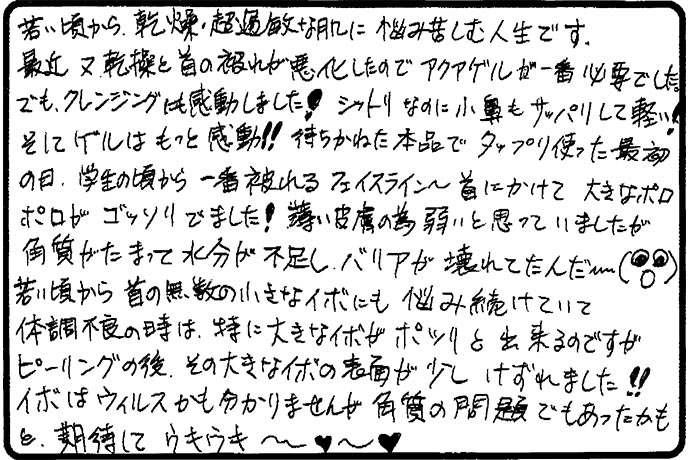 若い頃から、乾燥・超過敏な肌に 悩み苦しむ人生です。
最近 又 乾操と首の被れが悪化したので アクアゲルが一番必要でした。
でも、クレンジングにも感動しました! シットリなのに小鼻もサッパリして軽い!
そしてゲルはもっと感動!! 待ちかねた本品で タップリ使った最初
の日、学生の頃から 一番被れる フェイスライン〜首にかけて 大きなポロ
ポロが ゴッソリでました! 薄い皮膚の為弱いと思っていましたが
角質がたまって水分が不足し、バリアが壊れてたんだ〜
若い頃から首の無数の小さなイボにも 悩み続けていて
体調不良の時は、特に大きなイボがポツリと出来るのですが
ピーリングの後、その大きなイボの表面が少し けずれました!!
イボはウィルスかも分かりませんが 角質の問題でもあったかも
と、期待して ウキウキ 〜♥〜♥